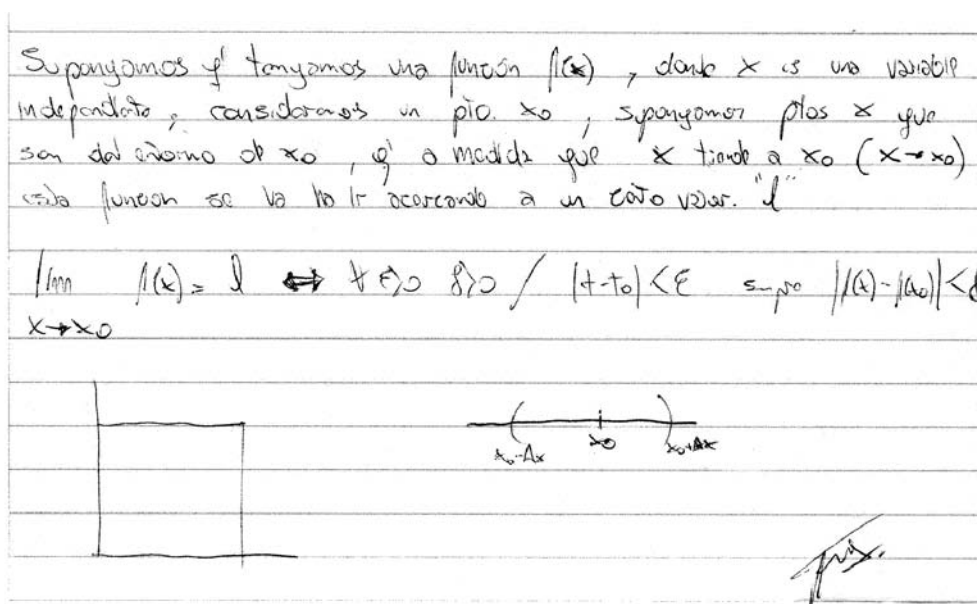 Supongamos q' tengamos una función f(x), donde x es una variable
independiente, consideramos un pto. x0, supongamos ptos x que
son del entorno de x0, q' a medida que x tiende a x0 (x→x0)
esta función se va ha ir acercando a un cierto valor. "l"
lim f(x) = l ⟺ ∀ ε>0 δ>0 / |t-t0|<ε |f(x)-f(x0)|<δ
x→x0
x0-Δx x0 x0+Δx